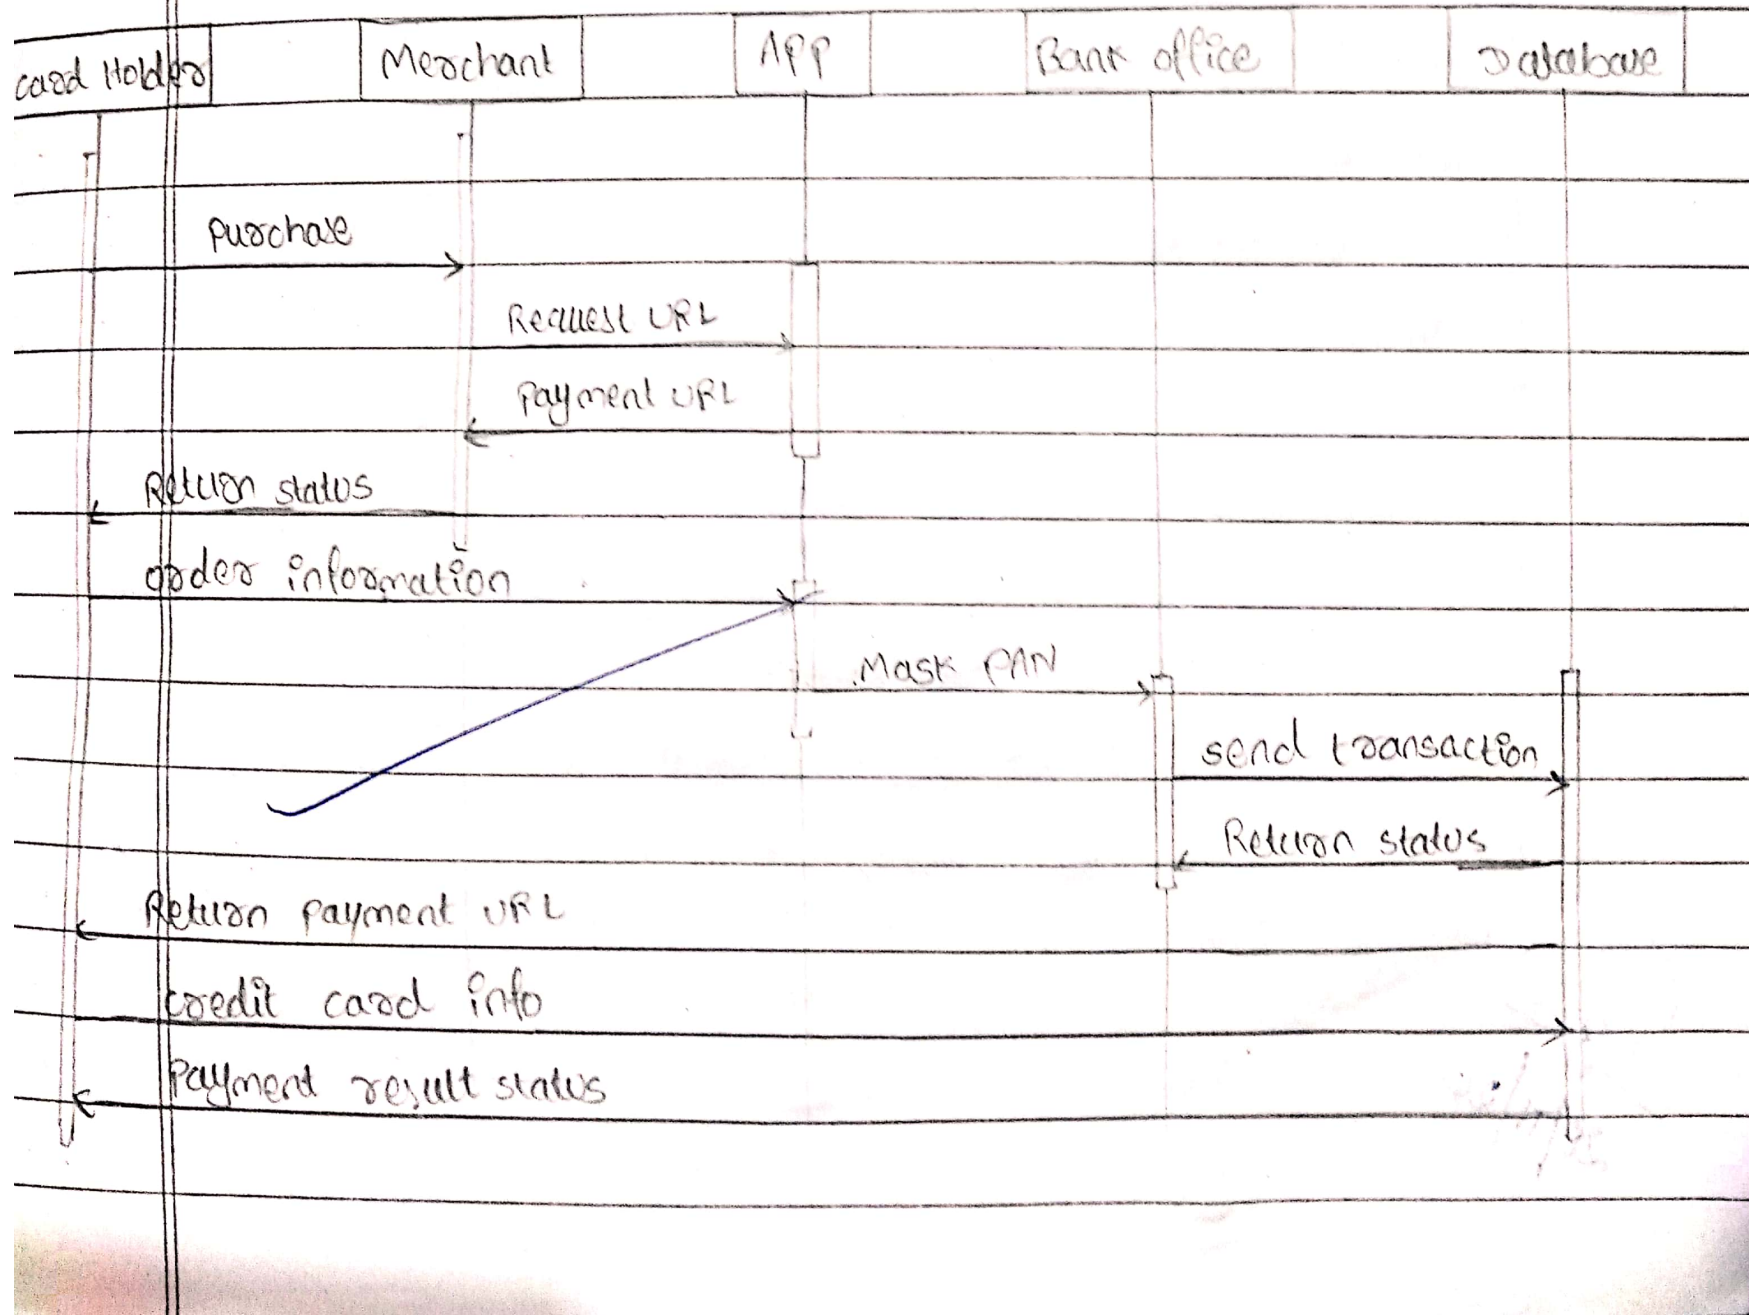 card Holder Merchant APP Bank office Database
purchase
Request URL
Payment URL
Return status
order information
Mask PAN
send transaction
Return status
Return payment URL
credit card info
Payment result status